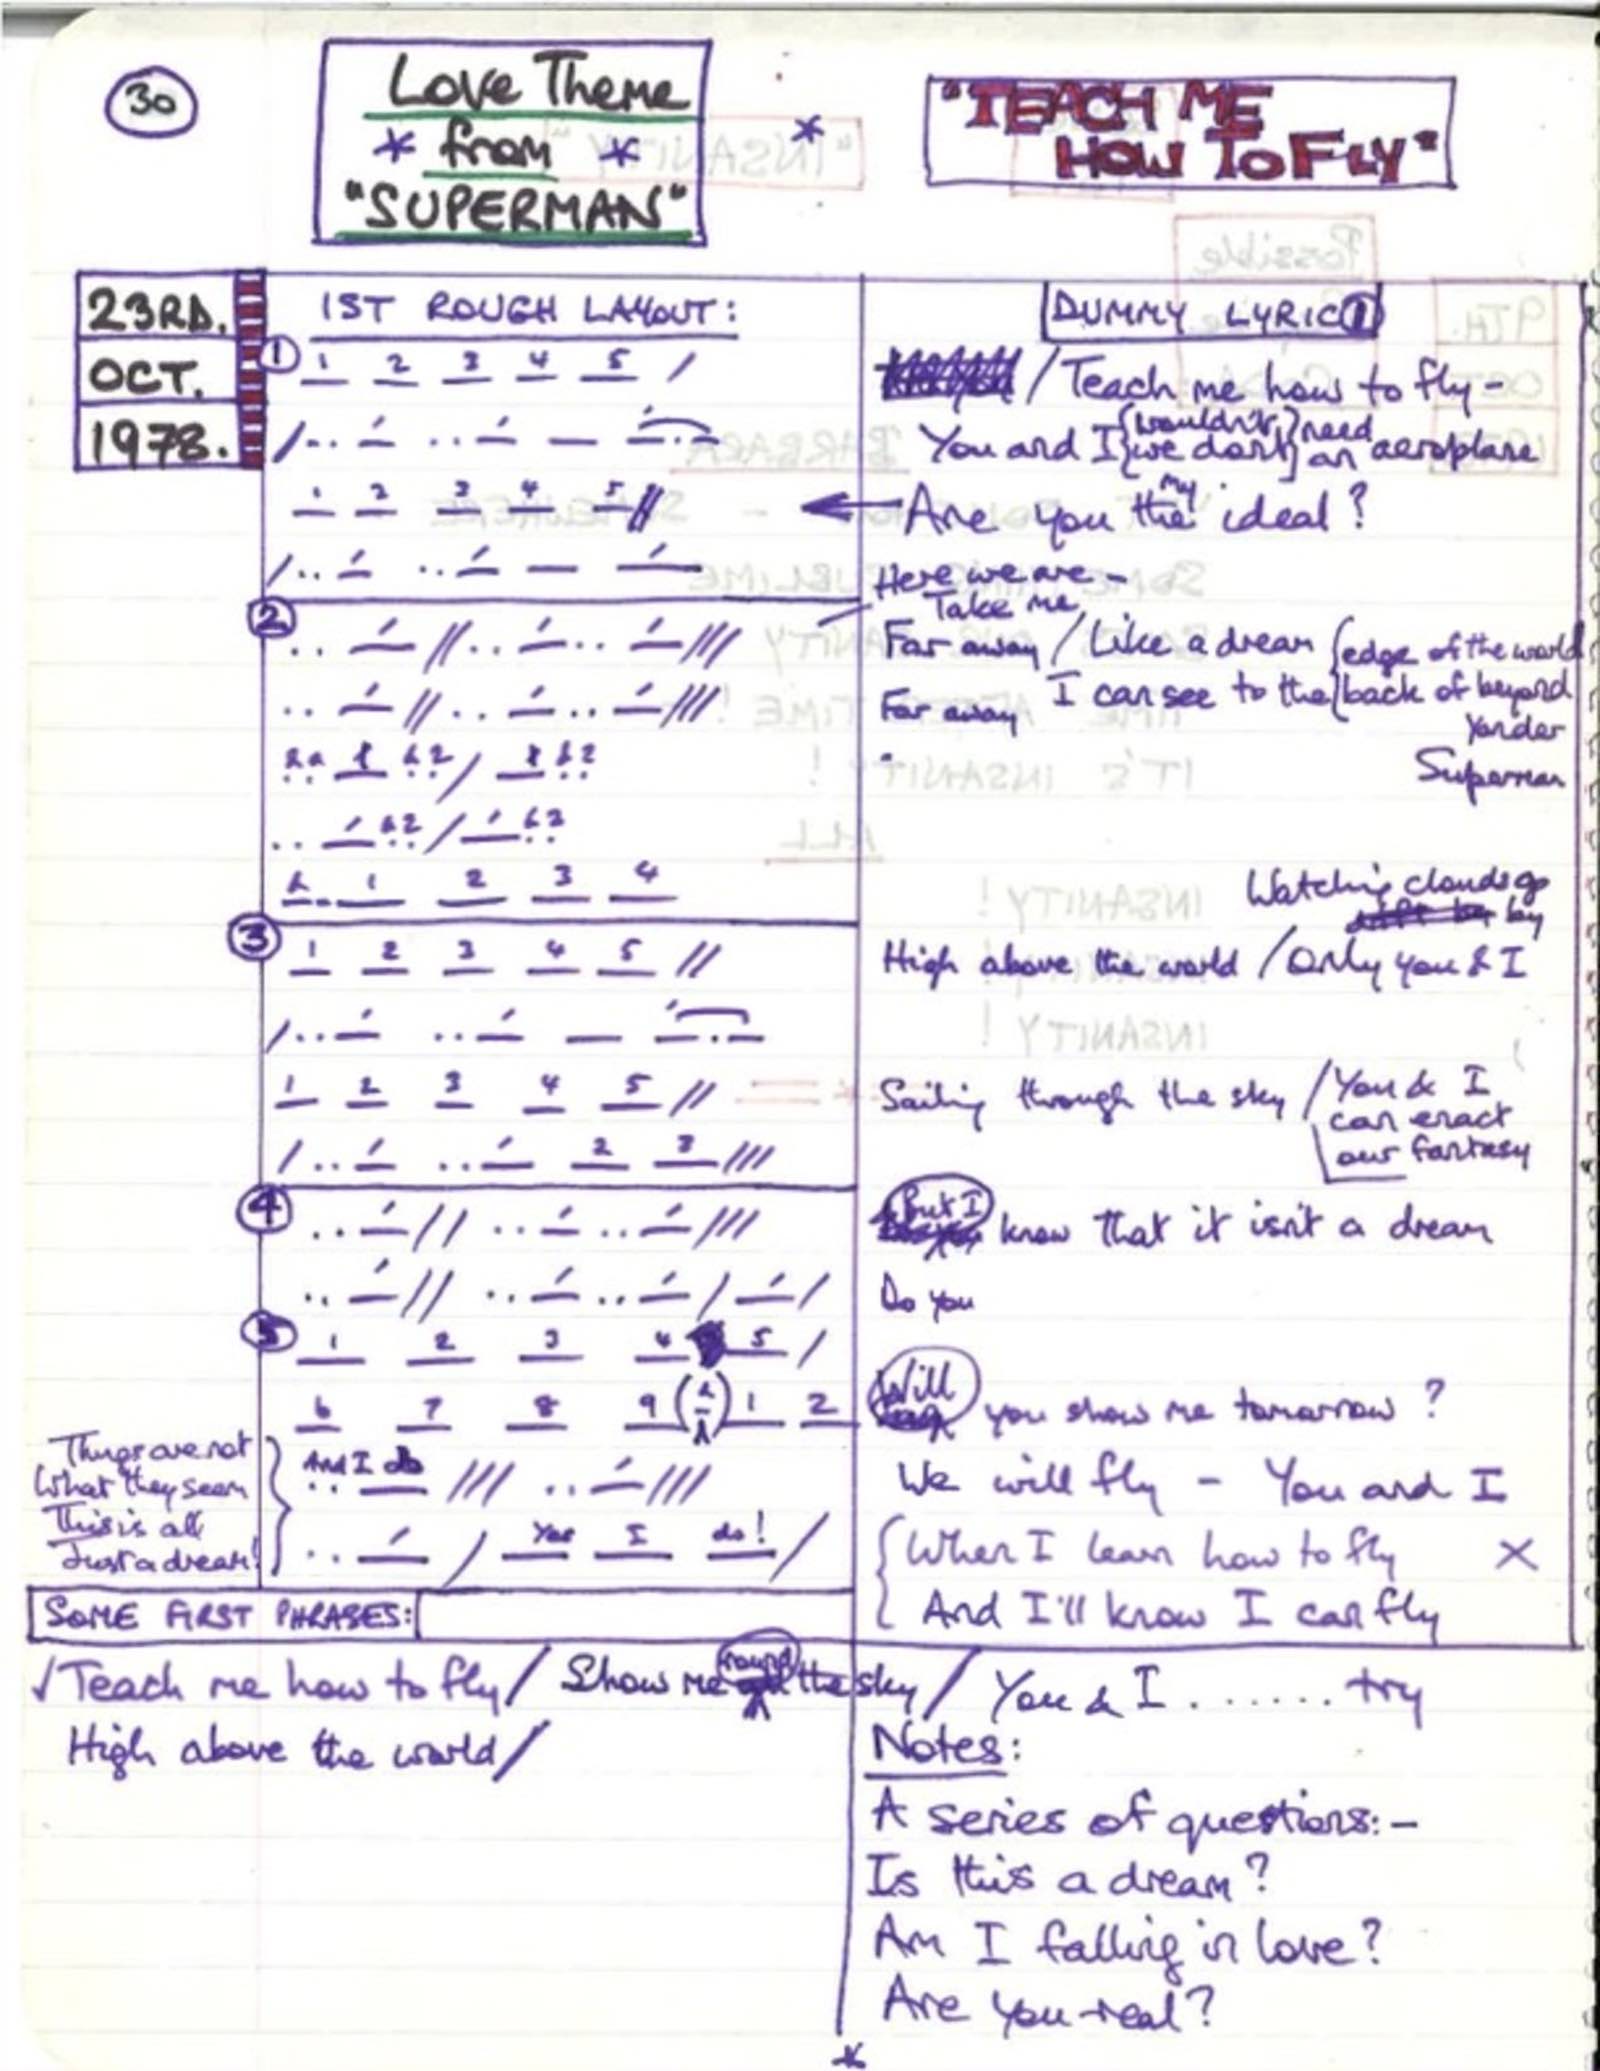 30
Love Theme
* from *
"SUPERMAN"
*
"TEACH ME
HOW TO FLY"
23RD.
OCT.
1978.
1ST ROUGH LAYOUT:
① 1 2 3 4 5 /
1 2 3 4 5 //
②
& 2 / & 2
& 2 / & 2
& 1 2 3 4
③ 1 2 3 4 5 //
1 2 3 4 5 //
2 3 ///
④
⑤ 1 2 3 4 5 /
6 7 8 9 (&) 1 2
And I do /// ///
/ Yes I do! /
Things are not
What they seem
This is all
Just a dream!
DUMMY LYRIC ①
/ Teach me how to fly -
You and I {wouldn't / we don't} need an aeroplane
Are you the my ideal?
Here we are -
Take me
Far away / Like a dream {edge of the world
Far away I can see to the {back of beyond
Yonder
Superman
Watching clouds go
drift by by
High above the world / Only you & I
Sailing through the sky / You & I
can enact
our fantasy
But I know that it isn't a dream
Do you
Will you show me tomorrow?
We will fly - You and I
{When I learn how to fly X
And I'll know I can fly
SOME FIRST PHRASES:
√ Teach me how to fly / Show me round the sky / You & I ....... try
High above the world /
Notes:
A series of questions:-
Is this a dream?
Am I falling in love?
Are you real?
*
"INSANITY"
Possible
9TH.
OCT.
BARBARA
SOMEWHERE
SUBLIME
TIME AFTER TIME!
IT'S INSANITY!
ALL
INSANITY!
INSANITY!
INSANITY!